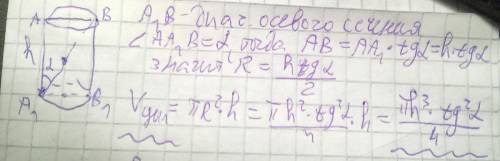 A B A₁B - диаг. осевого сечения
h ∠AA₁B = α, тогда AB = AA₁ · tgα = h · tgα
α значит R = htgα/2
A₁ B₁ Vцил = πR² · h = πh² · tg²α/4 · h = πh³ · tg²α/4